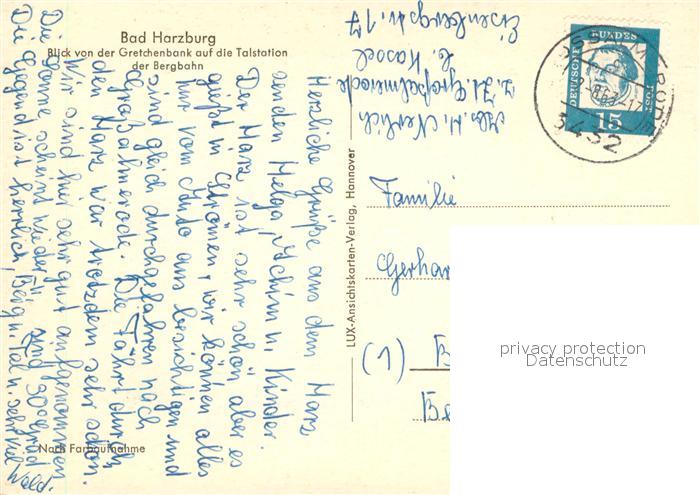 Bad Harzburg
Blick von der Gretchenbank auf die Talstation
der Bergbahn
Herzliche Grüße aus dem Harz
senden Helga, Achim u. Kinder.
Der Harz ist sehr schön aber es
gießt in Strömen, wir können alles
nur vom Auto aus besichtigen und
sind gleich durchgefahren nach
Großalmerode. Die Fahrt durch
den Harz war trotzdem sehr schön.
Wir sind hier sehr gut aufgenommen
Die Sonne scheint wieder
sind 30° Grad
Die Gegend ist herrlich, Berge, Tal u. sehr viel Wald.
Nach Farbaufnahme
LUX-Ansichtskarten-Verlag, Hannover
Abs. H. Nerlich
z. Zt. Großalmerode
b. Kassel
17
DEUTSCHE BUNDES POST
15
3432
Familie
Gerhar
(1) B
Be
privacy protection
Datenschutz